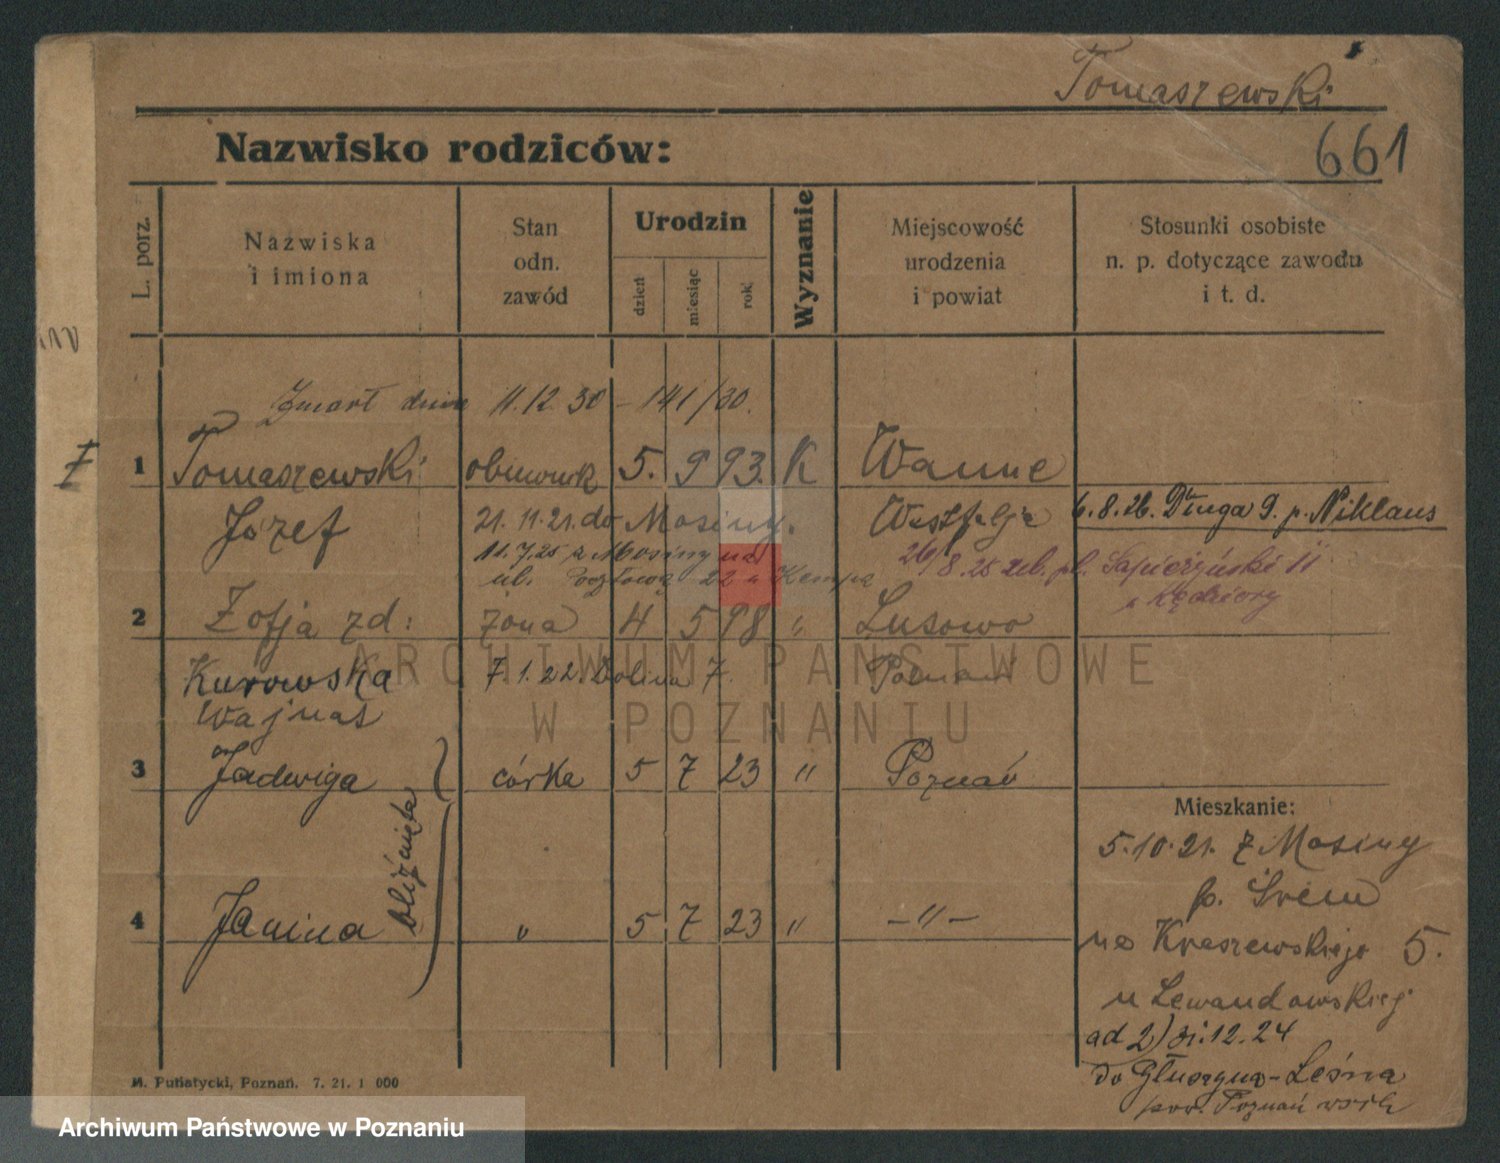 Tomaszewski
661
Nazwisko rodziców:
L. porz.
Nazwiska
i imiona
Stan
odn.
zawód
Urodzin
dzień
miesiąc
rok
Wyznanie
Miejscowość
urodzenia
i powiat
Stosunki osobiste
n. p. dotyczące zawodu
i t. d.
Zmarł dnia 11.12.30 - 141/30.
1 Tomaszewski 5. 9 93. K Wanne
Józef 21.11.21. do Mosiny. Westfalja
6.8.26. Długa 9. p. Niklaus
11.7.25 z Mosiny na
ul. 22 u Kempa
26/8.25 pl. Sapieżyński 11
u Kędziory
2 Zofja zd: żona 4 5 98 " Lusowo
Kurowska 7.1.22. Dolina 7. Poznań
Wajnas
3 Jadwiga córka 5 7 23 " Poznań
bliźnięta
4 Janina " 5 7 23 " -"-
Mieszkanie:
5.10.21. z Mosiny
p. Śrem
na Kraszewskiego 5.
u Lewandowskiej
ad 2) 31.12.24
do Głuszyna-Leśna
pow. Poznań wsch
M. Putiatycki, Poznań. 7. 21. 1 000
ARCHIWUM PAŃSTWOWE
W POZNANIU
Archiwum Państwowe w Poznaniu